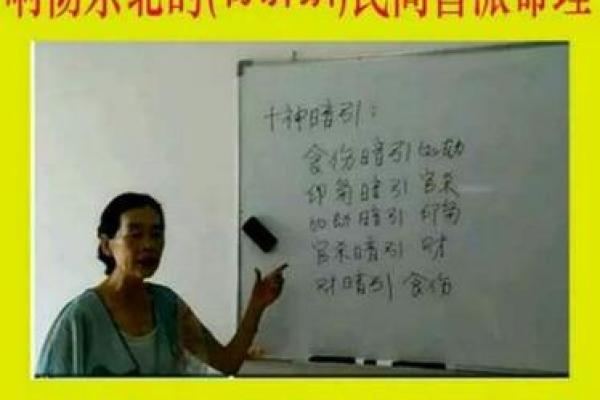 东北的()民间盲派命理
十神暗引：
食伤暗引比劫
印枭暗引官杀
比劫暗引印枭
官杀暗引财
财暗引食伤